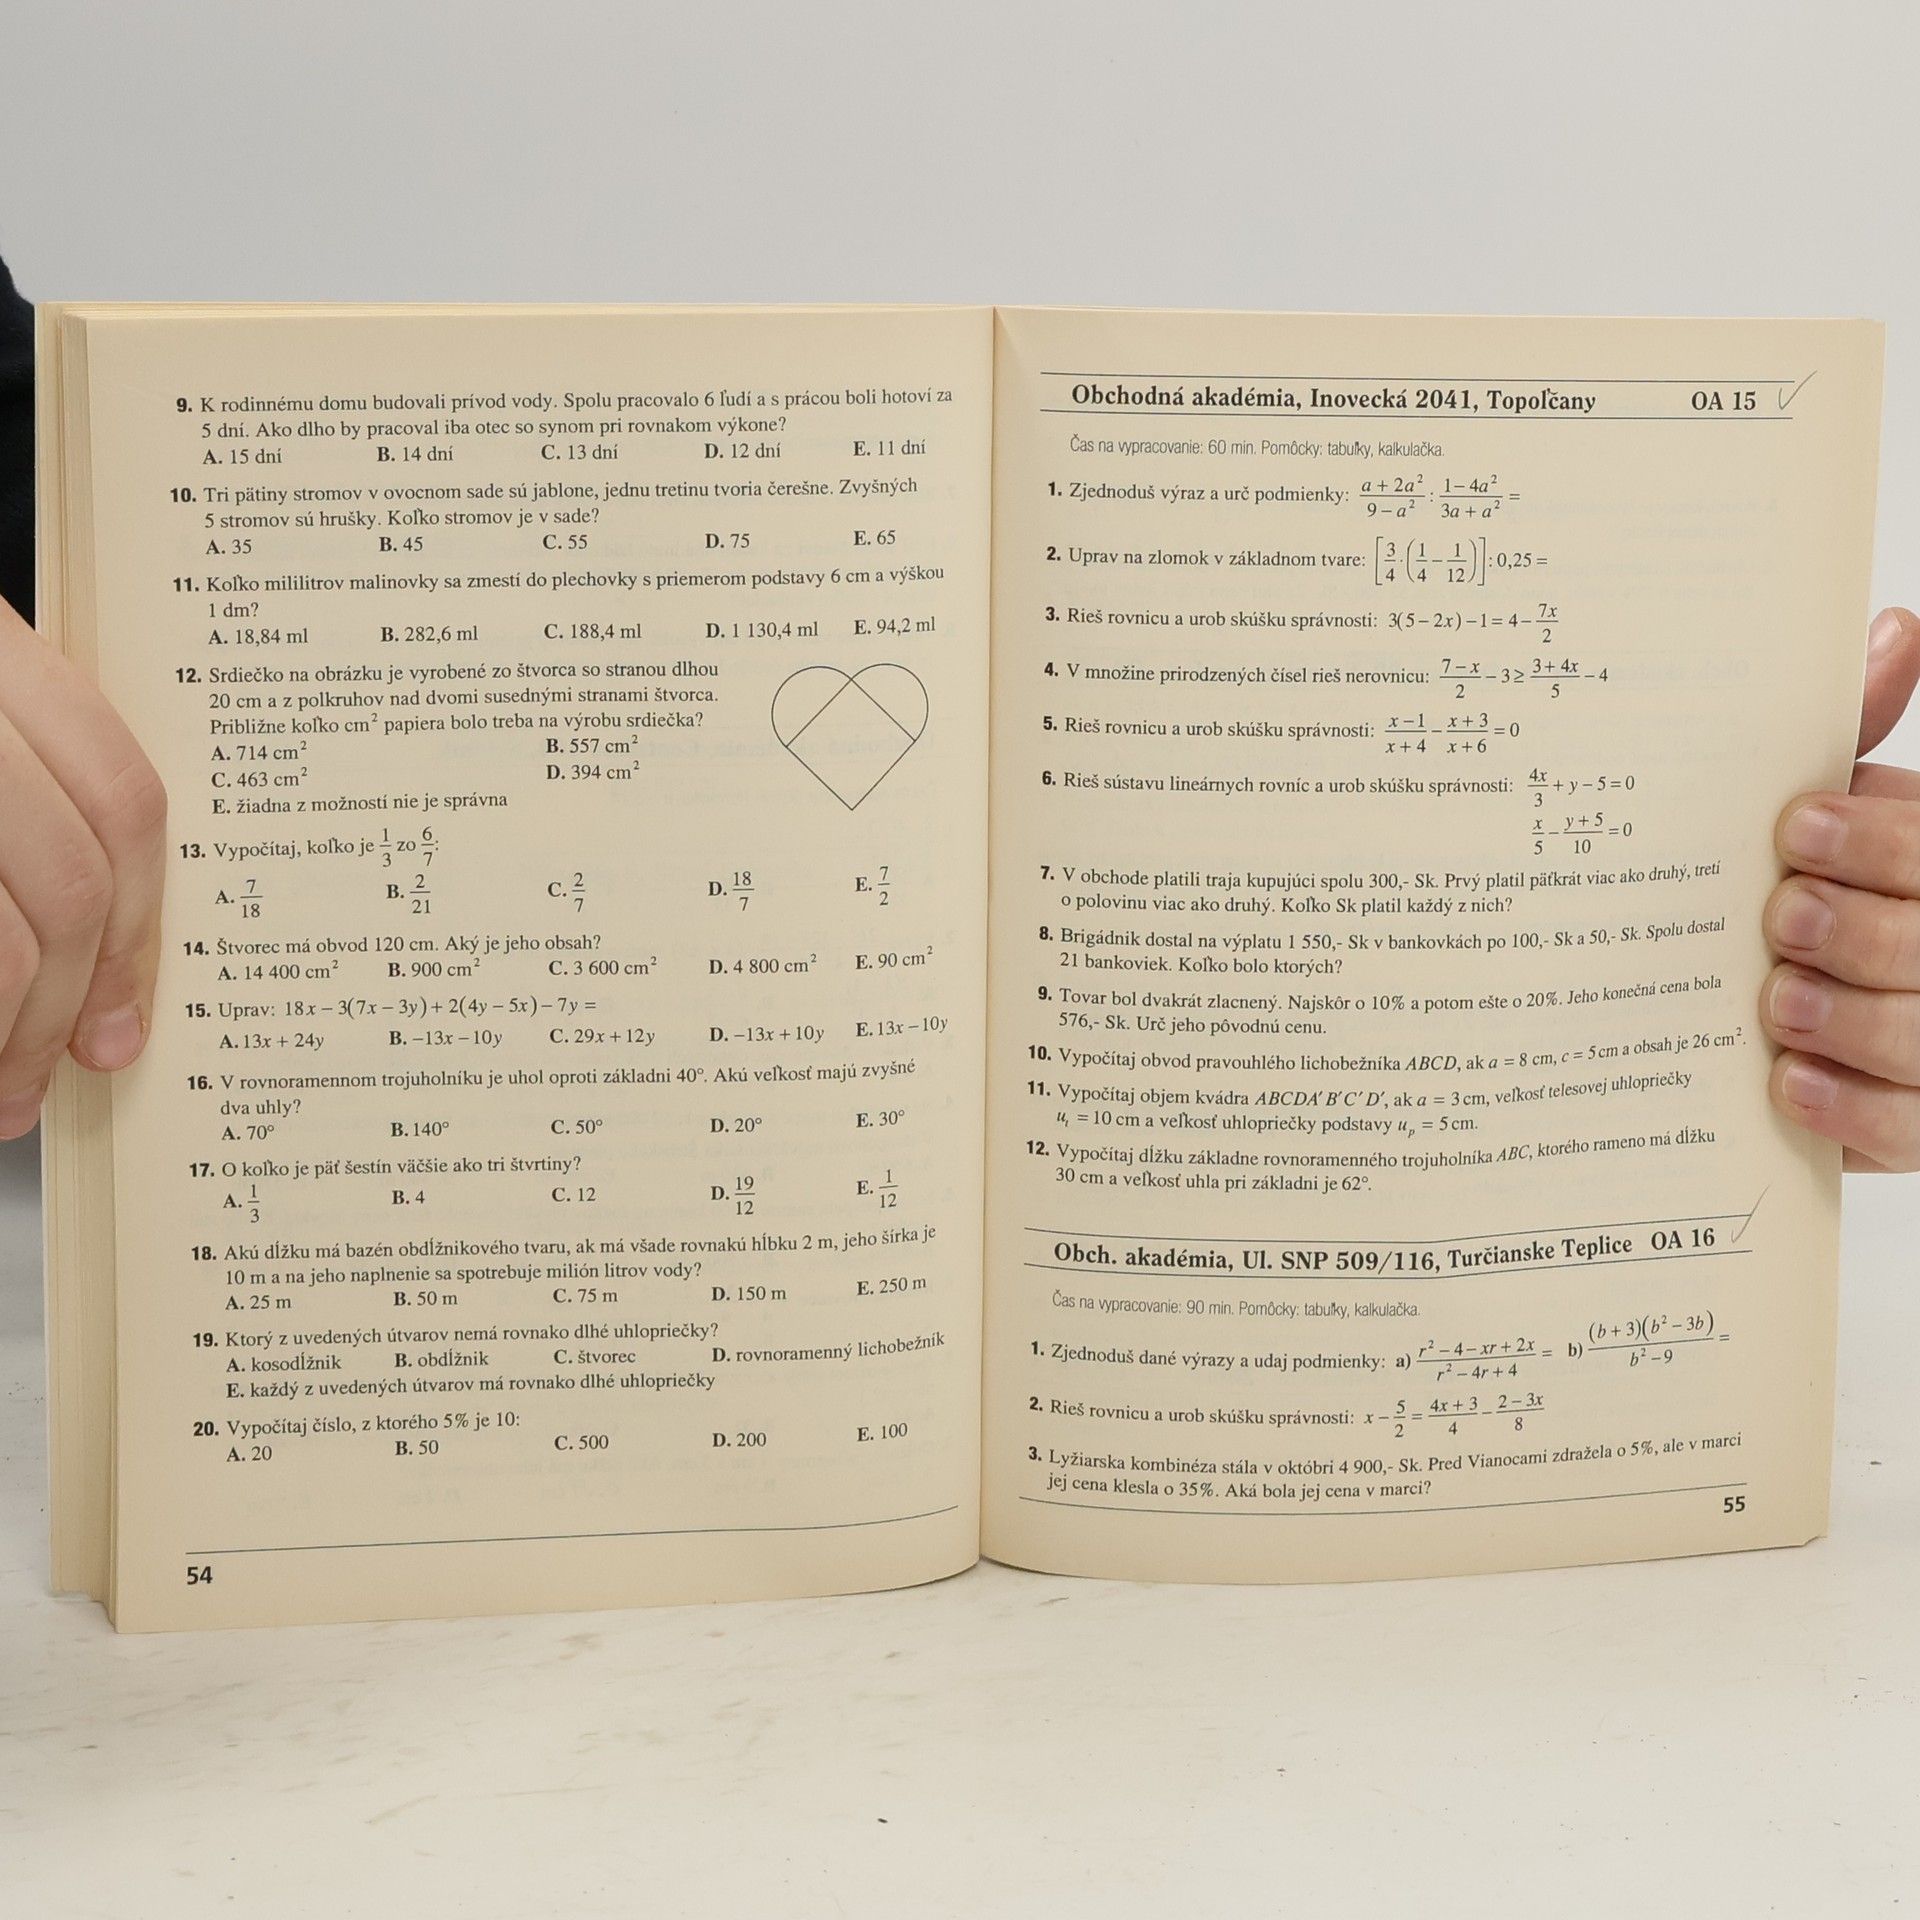 9. K rodinnému domu budovali prívod vody. Spolu pracovalo 6 ľudí a s prácou boli hotoví za
5 dní. Ako dlho by pracoval iba otec so synom pri rovnakom výkone?
A. 15 dní B. 14 dní C. 13 dní D. 12 dní E. 11 dní
10. Tri pätiny stromov v ovocnom sade sú jablone, jednu tretinu tvoria čerešne. Zvyšných
5 stromov sú hrušky. Koľko stromov je v sade?
A. 35 B. 45 C. 55 D. 75 E. 65
11. Koľko mililitrov malinovky sa zmestí do plechovky s priemerom podstavy 6 cm a výškou
1 dm?
A. 18,84 ml B. 282,6 ml C. 188,4 ml D. 1 130,4 ml E. 94,2 ml
12. Srdiečko na obrázku je vyrobené zo štvorca so stranou dlhou
20 cm a z polkruhov nad dvomi susednými stranami štvorca.
Približne koľko cm² papiera bolo treba na výrobu srdiečka?
A. 714 cm² B. 557 cm²
C. 463 cm² D. 394 cm²
E. žiadna z možností nie je správna
13. Vypočítaj, koľko je 1/3 zo 6/7:
A. 7/18 B. 2/21 C. 2/7 D. 18/7 E. 7/2
14. Štvorec má obvod 120 cm. Aký je jeho obsah?
A. 14 400 cm² B. 900 cm² C. 3 600 cm² D. 4 800 cm² E. 90 cm²
15. Uprav: 18x – 3(7x – 3y) + 2(4y – 5x) – 7y =
A. 13x + 24y B. –13x – 10y C. 29x + 12y D. –13x + 10y E. 13x – 10y
16. V rovnoramennom trojuholníku je uhol oproti základni 40°. Akú veľkosť majú zvyšné
dva uhly?
A. 70° B. 140° C. 50° D. 20° E. 30°
17. O koľko je päť šestín väčšie ako tri štvrtiny?
A. 1/3 B. 4 C. 12 D. 19/12 E. 1/12
18. Akú dĺžku má bazén obdĺžnikového tvaru, ak má všade rovnakú hĺbku 2 m, jeho šírka je
10 m a na jeho naplnenie sa spotrebuje milión litrov vody?
A. 25 m B. 50 m C. 75 m D. 150 m E. 250 m
19. Ktorý z uvedených útvarov nemá rovnako dlhé uhlopriečky?
A. kosodĺžnik B. obdĺžnik C. štvorec D. rovnoramenný lichobežník
E. každý z uvedených útvarov má rovnako dlhé uhlopriečky
20. Vypočítaj číslo, z ktorého 5% je 10:
A. 20 B. 50 C. 500 D. 200 E. 100
54
Obchodná akadémia, Inovecká 2041, Topoľčany OA 15
Čas na vypracovanie: 60 min. Pomôcky: tabuľky, kalkulačka.
1. Zjednoduš výraz a urč podmienky: (a + 2a²)/(9 – a²) : (1 – 4a²)/(3a + a²) =
2. Uprav na zlomok v základnom tvare: [3/4 · (1/4 – 1/12)] : 0,25 =
3. Rieš rovnicu a urob skúšku správnosti: 3(5 – 2x) – 1 = 4 – 7x/2
4. V množine prirodzených čísel rieš nerovnicu: (7 – x)/2 – 3 ≥ (3 + 4x)/5 – 4
5. Rieš rovnicu a urob skúšku správnosti: (x – 1)/(x + 4) – (x + 3)/(x + 6) = 0
6. Rieš sústavu lineárnych rovníc a urob skúšku správnosti: 4x/3 + y – 5 = 0
x/5 – (y + 5)/10 = 0
7. V obchode platili traja kupujúci spolu 300,- Sk. Prvý platil päťkrát viac ako druhý, tretí
o polovinu viac ako druhý. Koľko Sk platil každý z nich?
8. Brigádnik dostal na výplatu 1 550,- Sk v bankovkách po 100,- Sk a 50,- Sk. Spolu dostal
21 bankoviek. Koľko bolo ktorých?
9. Tovar bol dvakrát zlacnený. Najskôr o 10% a potom ešte o 20%. Jeho konečná cena bola
576,- Sk. Urč jeho pôvodnú cenu.
10. Vypočítaj obvod pravouhlého lichobežníka ABCD, ak a = 8 cm, c = 5 cm a obsah je 26 cm².
11. Vypočítaj objem kvádra ABCDA′B′C′D′, ak a = 3 cm, veľkosť telesovej uhlopriečky
uₜ = 10 cm a veľkosť uhlopriečky podstavy uₚ = 5 cm.
12. Vypočítaj dĺžku základne rovnoramenného trojuholníka ABC, ktorého rameno má dĺžku
30 cm a veľkosť uhla pri základni je 62°.
Obch. akadémia, Ul. SNP 509/116, Turčianske Teplice OA 16
Čas na vypracovanie: 90 min. Pomôcky: tabuľky, kalkulačka.
1. Zjednoduš dané výrazy a udaj podmienky: a) (r² – 4 – xr + 2x)/(r² – 4r + 4) = b) (b + 3)(b² – 3b)/(b² – 9) =
2. Rieš rovnicu a urob skúšku správnosti: x – 5/2 = (4x + 3)/4 – (2 – 3x)/8
3. Lyžiarska kombinéza stála v októbri 4 900,- Sk. Pred Vianocami zdražela o 5%, ale v marci
jej cena klesla o 35%. Aká bola jej cena v marci?
55